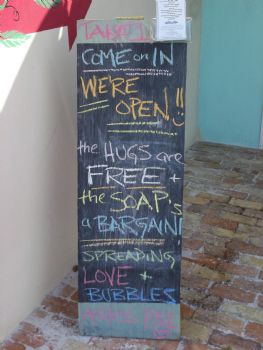 COME on IN
WE'RE
OPEN!!
the HUGS are
FREE +
the SOAP'S
a BARGAIN!
SPREADING
LOVE +
BUBBLES